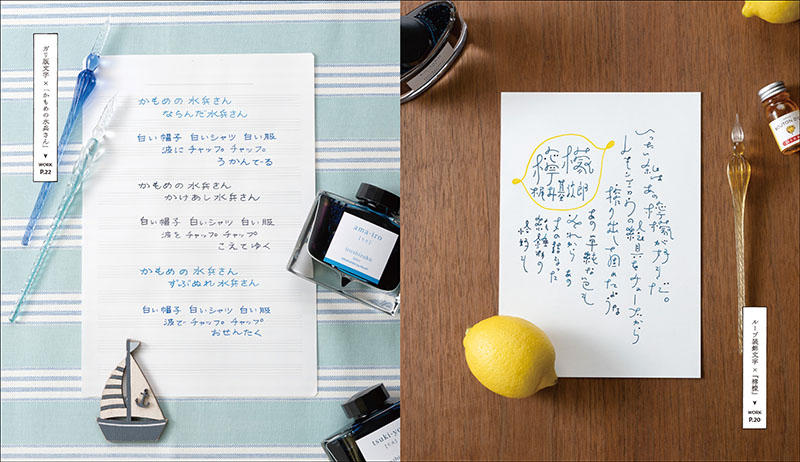 ガリ版文字×「かもめの水兵さん」▼
WORK
P.22
かもめの 水兵さん
ならんだ 水兵さん
白い帽子 白いシャツ 白い服
波に チャップ チャップ
うかんでーる
かもめの 水兵さん
かけあし 水兵さん
白い帽子 白いシャツ 白い服
波を チャップ チャップ
こえてゆく
かもめの 水兵さん
ずぶぬれ 水兵さん
白い帽子 白いシャツ 白い服
波で チャップ チャップ
おせんたく
ama-iro
iroshizuku
tsuki-yo
檸檬
梶井基次郎
いったい私はあの檸檬が好きだ。
レモンエロウの絵具をチューブから
搾り出して固めたような
あの単純な色も
それから あの
丈の詰まった
紡錘形の
恰好も
BOUTON D'
ループ装飾文字×『檸檬』▼
WORK
P.20